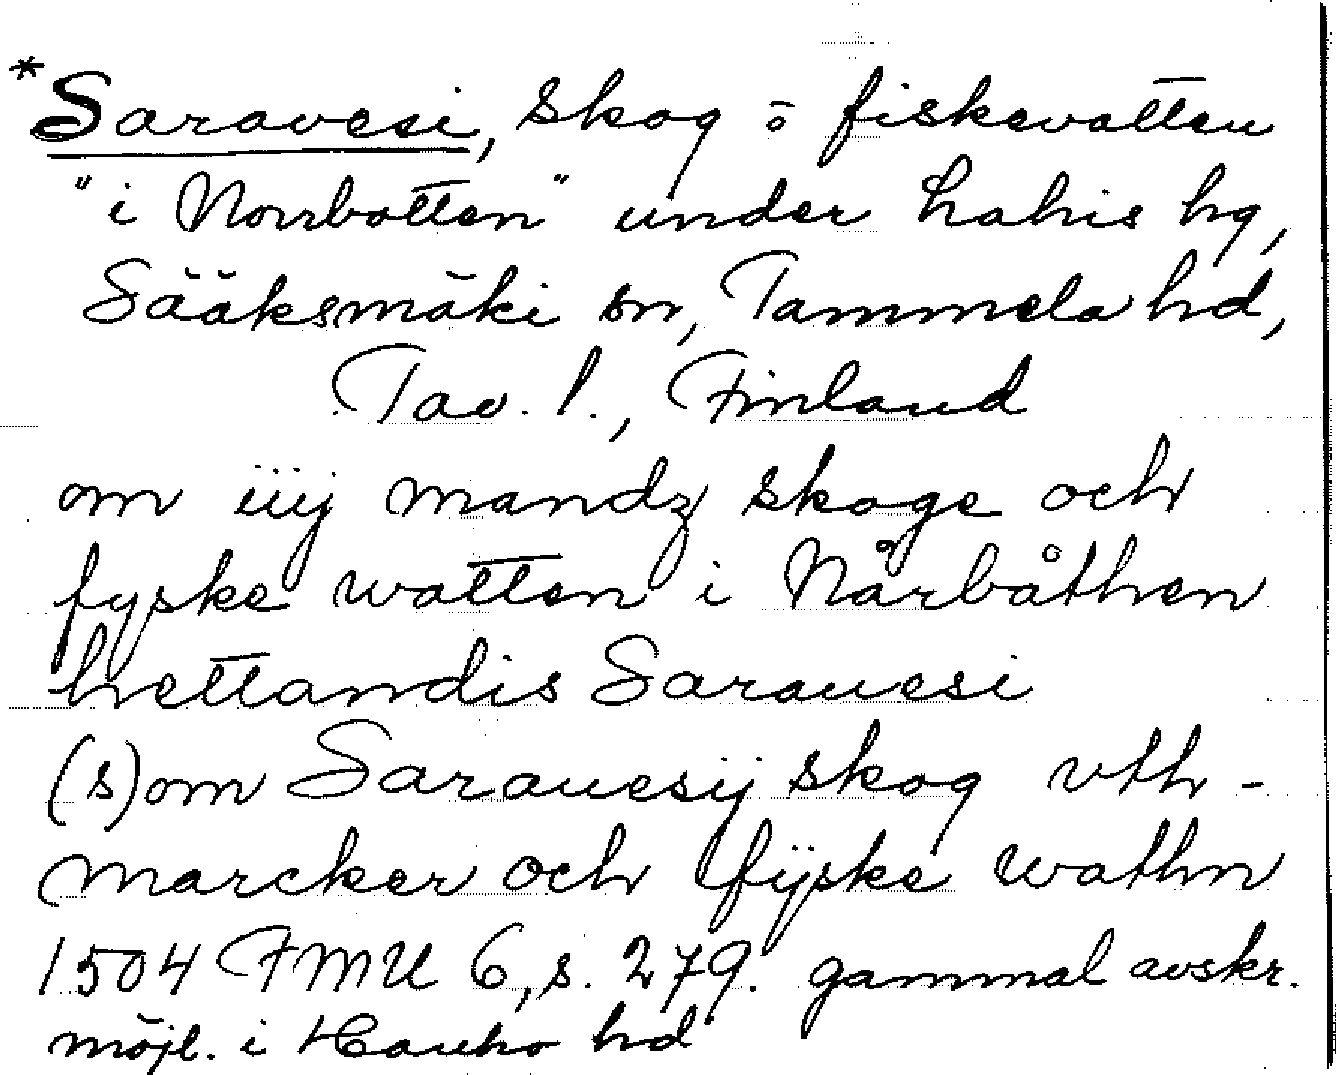 *Saravesi, skog o fiskevatten
"i Norrbotten" under Lahis hg,
Sääksmäki sn, Tammela hd,
Tav. l., Finland
om iiij mandz skoge och
fyske watten i Nårbåthen
hettandis Sarauesi
(s)om Sarauesij skog vth-
marcker och ffÿske wathn
1504 FMU 6, s. 279. gammal avskr.
möjl. i Hauho hd